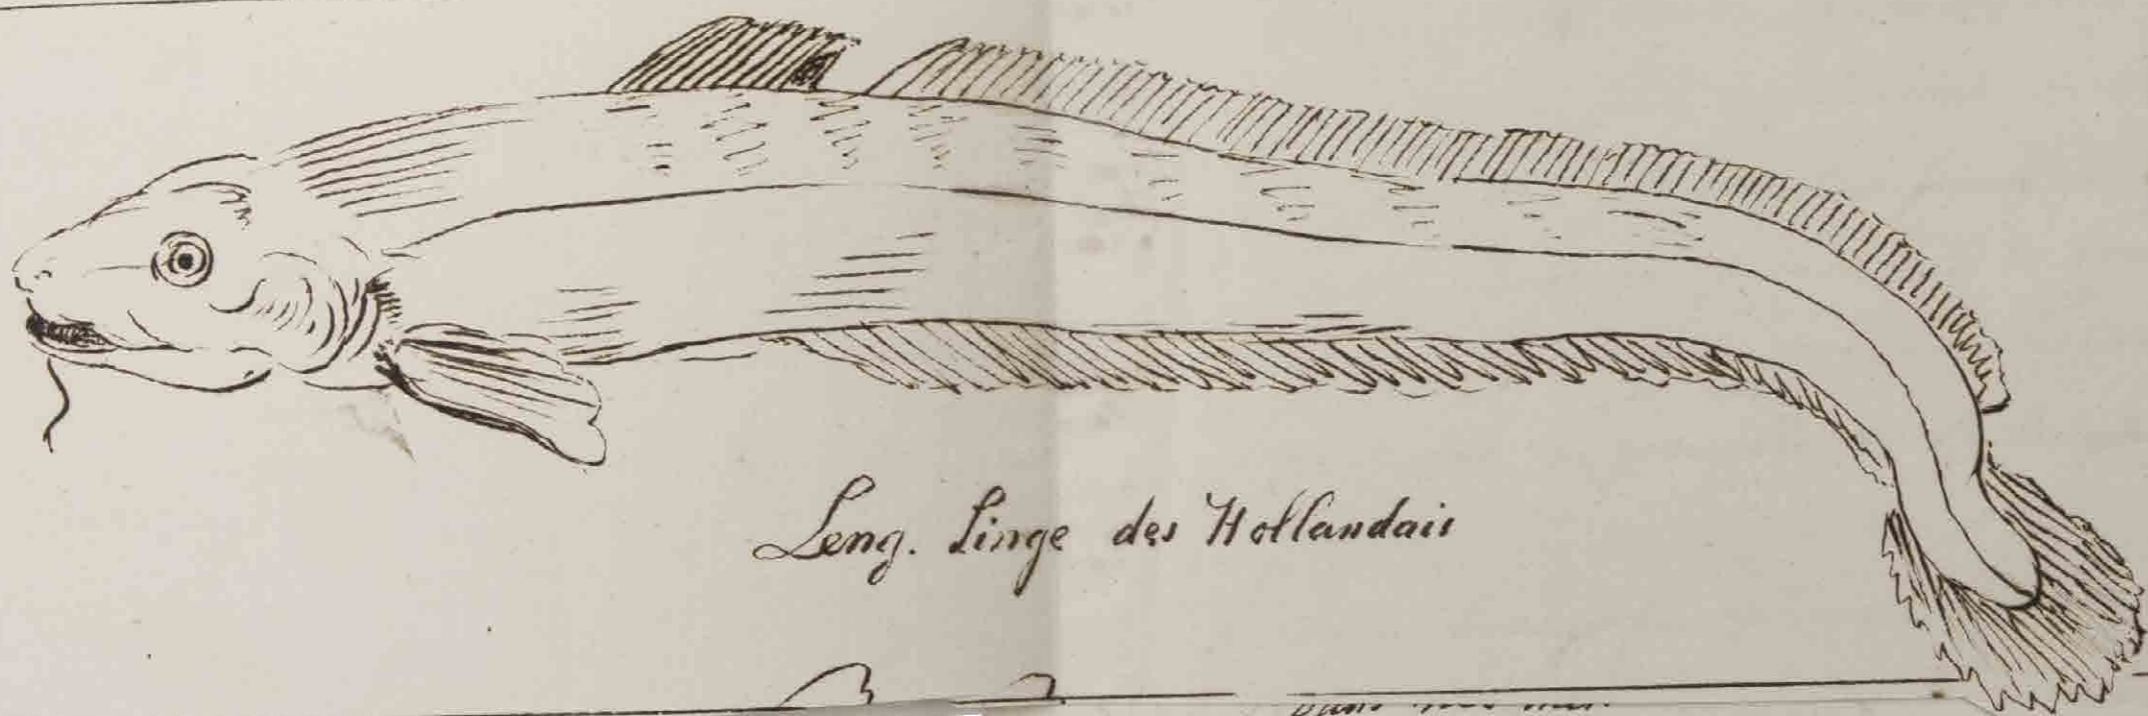 Leng. Linge des Hollandais